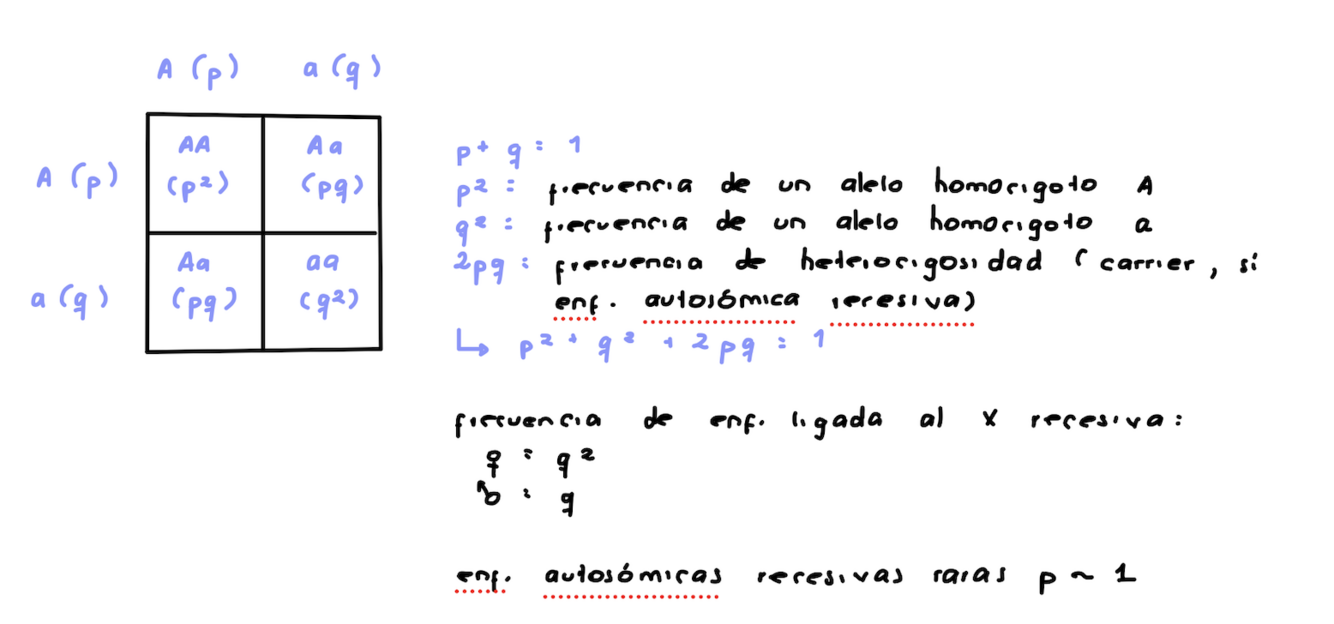 A (p) a (q)
A (p) AA Aa
(p²) (pq)
a (q) Aa aa
(pq) (q²)
p + q = 1
p² = frecuencia de un alelo homocigoto A
q² = frecuencia de un alelo homocigoto a
2pq = frecuencia de heterocigosidad (carrier, si
enf. autosómica recesiva)
↳ p² + q² + 2pq = 1
frecuencia de enf. ligada al X recesiva:
♀ : q²
♂ : q
enf. autosómicas recesivas raras p ~ 1